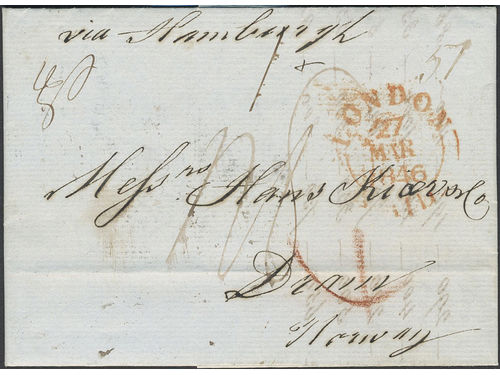 via Hamburgh
57
LONDON
27
MAR
1846
Messrs Hans Kiær & Co
Dramm
Norway